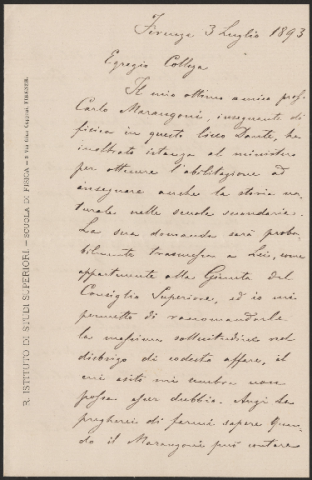 Firenze 3 Luglio 1893
Egregio Collega
Il mio ottimo amico prof.
Carlo Marangoni, insegnante di
fisica in questo Liceo Dante, ha
inoltrato istanza al ministero
per ottenere l'abilitazione ad
insegnare anche la storia na-
turale nelle scuole secondarie.
La sua domanda sarà proba-
bilmente trasmessa a Lei, come
appartenente alla Giunta del
Consiglio Superiore, ed io mi
permetto di raccomandarle
la massima sollecitudine nel
disbrigo di codesto affare, il
cui esito mi sembra non
possa esser dubbio. Anzi La
pregherei di farmi sapere quan-
do il Marangoni può contare
R. ISTITUTO DI STUDI SUPERIORI. — SCUOLA DI FISICA — FIRENZE.